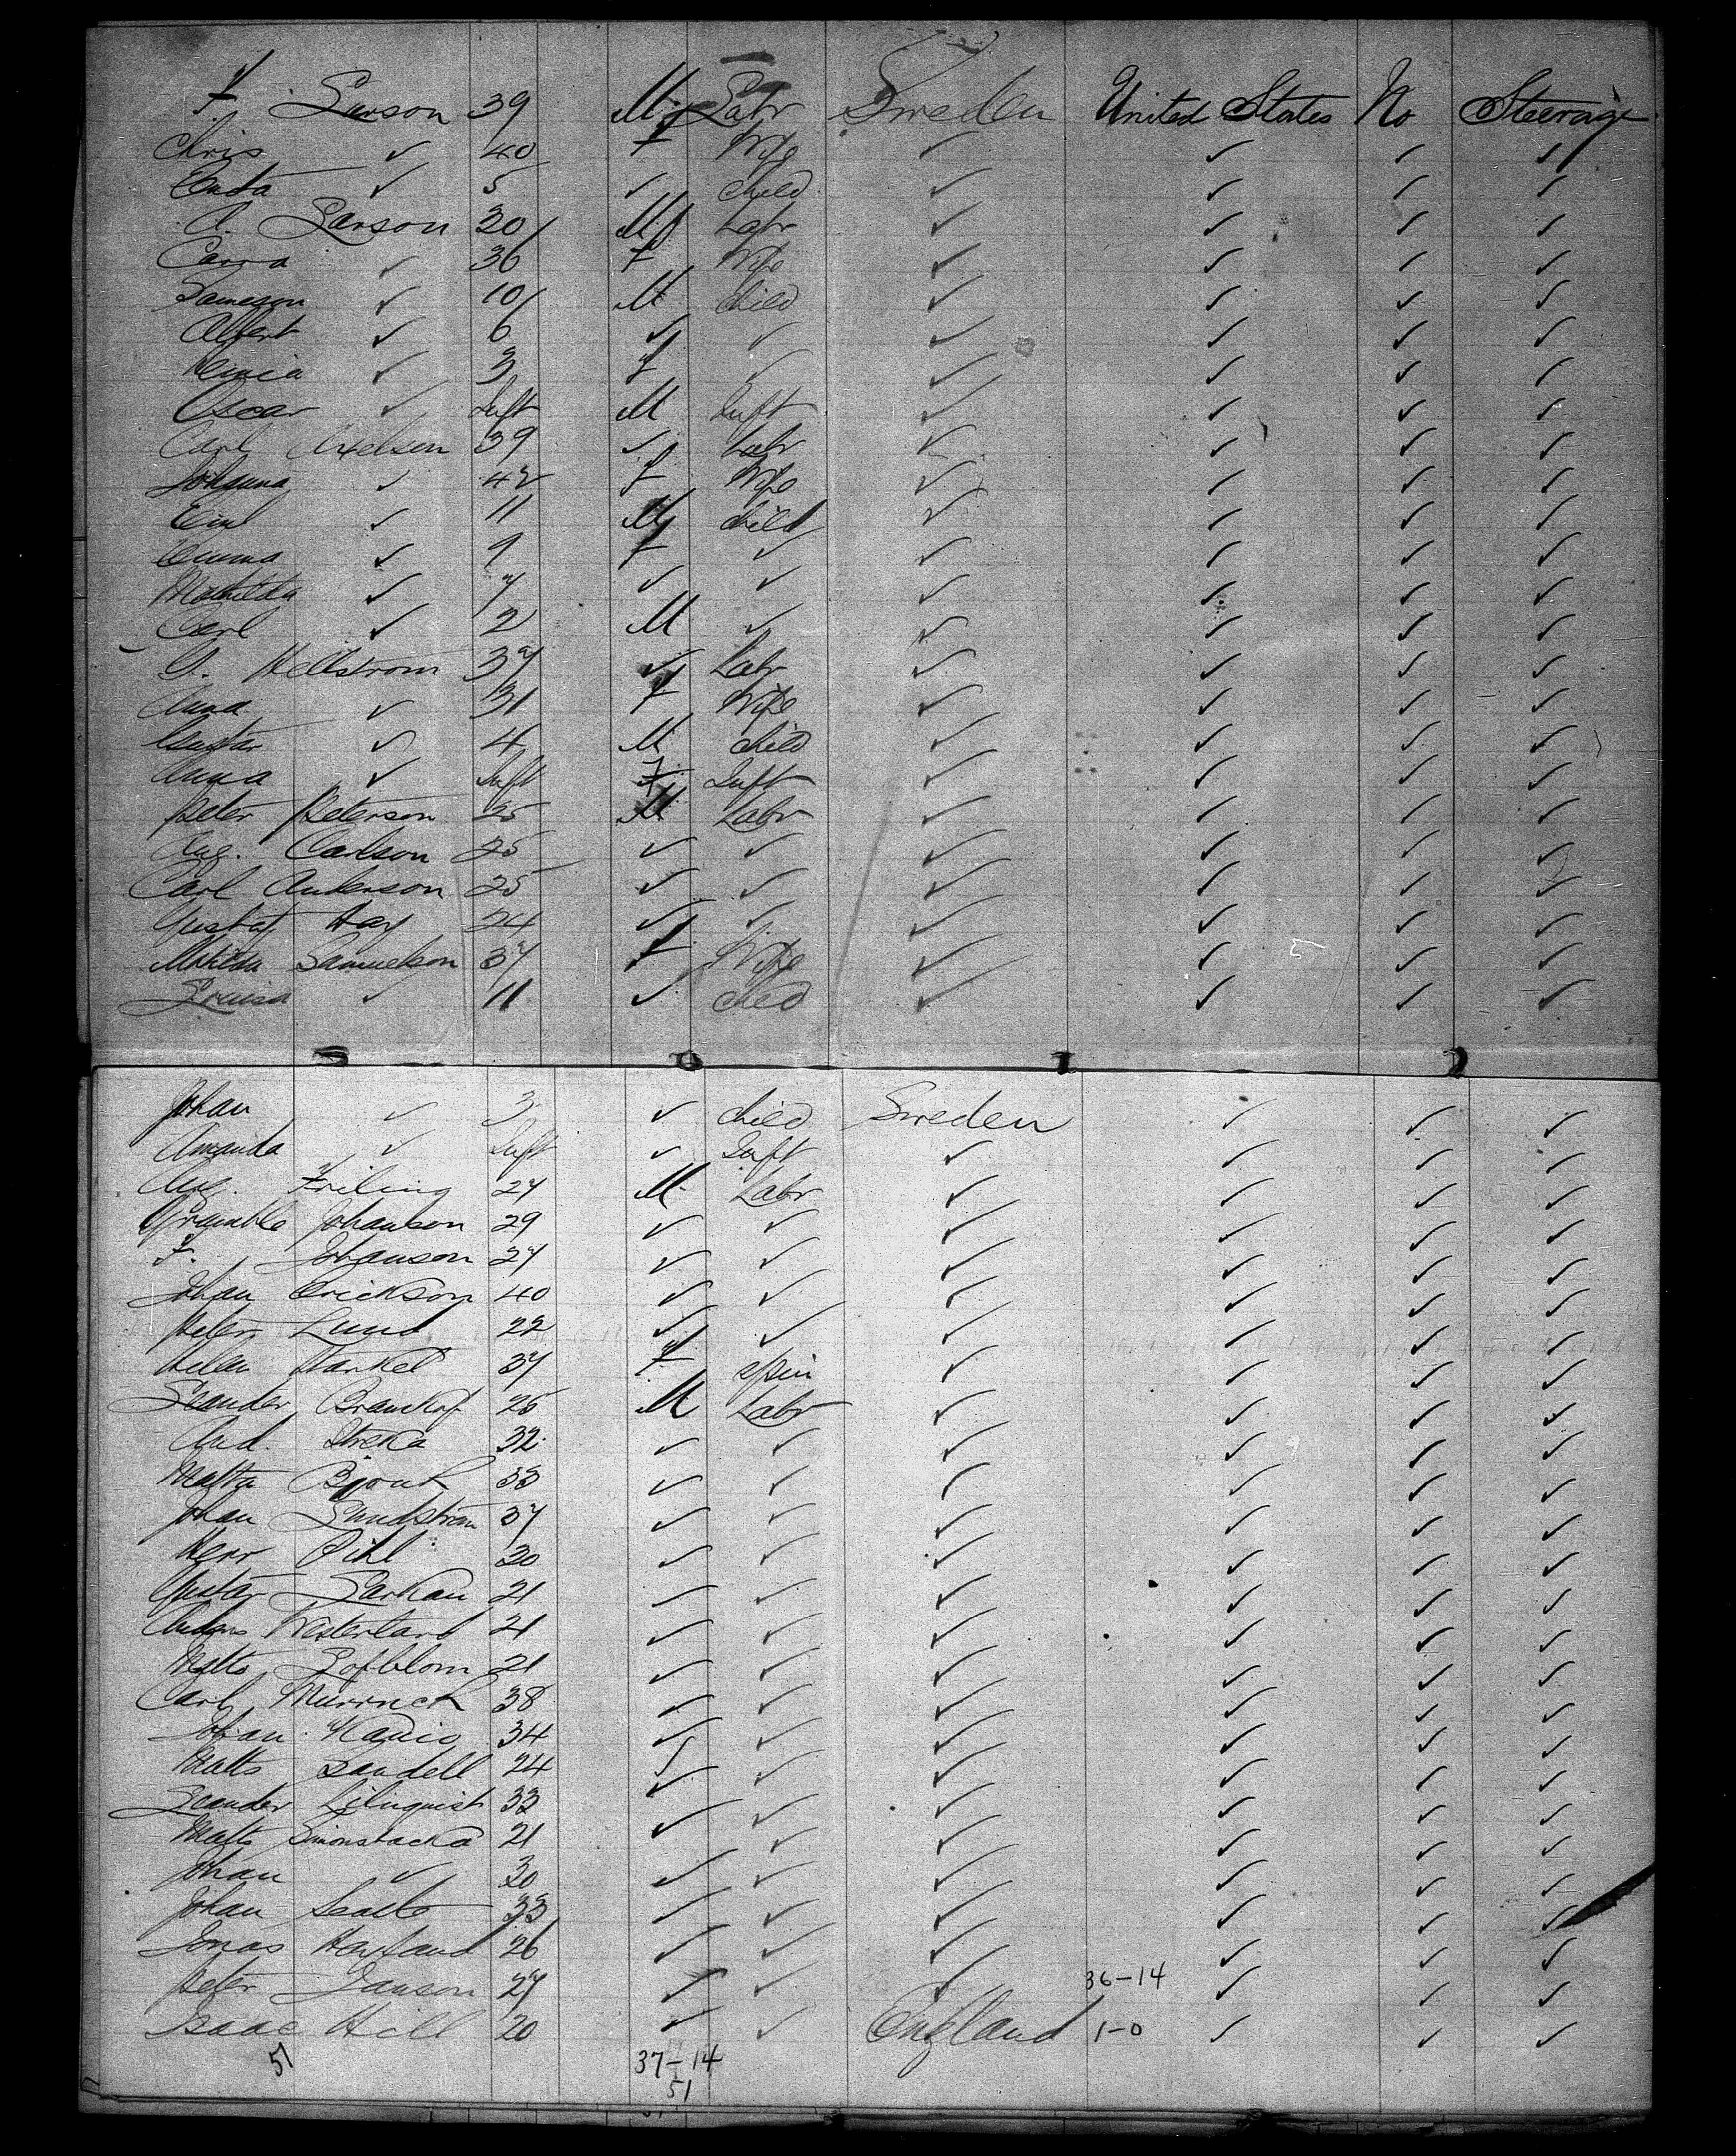 F. Larson 39 M Labr Sweden United States No Steerage
Chris ✓ 40 F Wife ✓ ✓ ✓ ✓
✓ 5 ✓ child ✓ ✓ ✓ ✓
A. Larson 30 M Labr ✓ ✓ ✓ ✓
✓ 36 F Wife ✓ ✓ ✓ ✓
✓ 10 M child ✓ ✓ ✓ ✓
Albert ✓ 6 ✓ ✓ ✓ ✓ ✓ ✓
✓ 3 F ✓ ✓ ✓ ✓ ✓
Oscar ✓ Inft M Inft ✓ ✓ ✓ ✓
Carl Axelson 39 ✓ Labr ✓ ✓ ✓ ✓
Johanna ✓ 42 F Wife ✓ ✓ ✓ ✓
Emil ✓ 11 M child ✓ ✓ ✓ ✓
Emma ✓ 9 F ✓ ✓ ✓ ✓ ✓
Mathilda ✓ 7 ✓ ✓ ✓ ✓ ✓ ✓
Carl ✓ 2 M ✓ ✓ ✓ ✓ ✓
Hellstrom 37 ✓ Labr ✓ ✓ ✓ ✓
Anna ✓ 31 F Wife ✓ ✓ ✓ ✓
Gustav ✓ 4 M child ✓ ✓ ✓ ✓
Anna ✓ Inft F Inft ✓ ✓ ✓ ✓
Peter Peterson 25 M Labr ✓ ✓ ✓ ✓
Aug. Carlson 25 ✓ ✓ ✓ ✓ ✓ ✓
Carl Anderson 25 ✓ ✓ ✓ ✓ ✓ ✓
Gustaf Hay 24 ✓ ✓ ✓ ✓ ✓ ✓
Matilda Samuelson 37 F Wife ✓ ✓ ✓ ✓
Louisa ✓ 11 ✓ child ✓ ✓ ✓ ✓
Johan ✓ 3 ✓ child Sweden ✓ ✓ ✓
Amanda ✓ Inft ✓ Inft ✓ ✓ ✓ ✓
Aug. Friling 27 M Labr ✓ ✓ ✓ ✓
Johanson 29 ✓ ✓ ✓ ✓ ✓ ✓
F. Johanson 27 ✓ ✓ ✓ ✓ ✓ ✓
Johan Erickson 40 ✓ ✓ ✓ ✓ ✓ ✓
Peter Lund 22 ✓ ✓ ✓ ✓ ✓ ✓
Helen Markel 37 F Spin ✓ ✓ ✓ ✓
Leander 25 M Labr ✓ ✓ ✓ ✓
And. 32 ✓ ✓ ✓ ✓ ✓ ✓
33 ✓ ✓ ✓ ✓ ✓ ✓
Johan Sundstrom 37 ✓ ✓ ✓ ✓ ✓ ✓
Herr Pihl 30 ✓ ✓ ✓ ✓ ✓ ✓
Gustav Larkau 21 ✓ ✓ ✓ ✓ ✓ ✓
Anders Westerlard 21 ✓ ✓ ✓ ✓ ✓ ✓
Matts Lofblom 21 ✓ ✓ ✓ ✓ ✓ ✓
Carl 38 ✓ ✓ ✓ ✓ ✓ ✓
Johan 34 ✓ ✓ ✓ ✓ ✓ ✓
Matts Sandell 24 ✓ ✓ ✓ ✓ ✓ ✓
Leander Lilinquist 33 ✓ ✓ ✓ ✓ ✓ ✓
Matts Simonstacka 21 ✓ ✓ ✓ ✓ ✓ ✓
Johan ✓ 30 ✓ ✓ ✓ ✓ ✓ ✓
Johan 33 ✓ ✓ ✓ ✓ ✓ ✓
Jonas 26 ✓ ✓ ✓ ✓ ✓ ✓
Peter Janson 27 ✓ ✓ ✓ 36-14 ✓ ✓ ✓
Isaac Hill 20 ✓ ✓ England 1-0 ✓ ✓ ✓
51 37-14
51